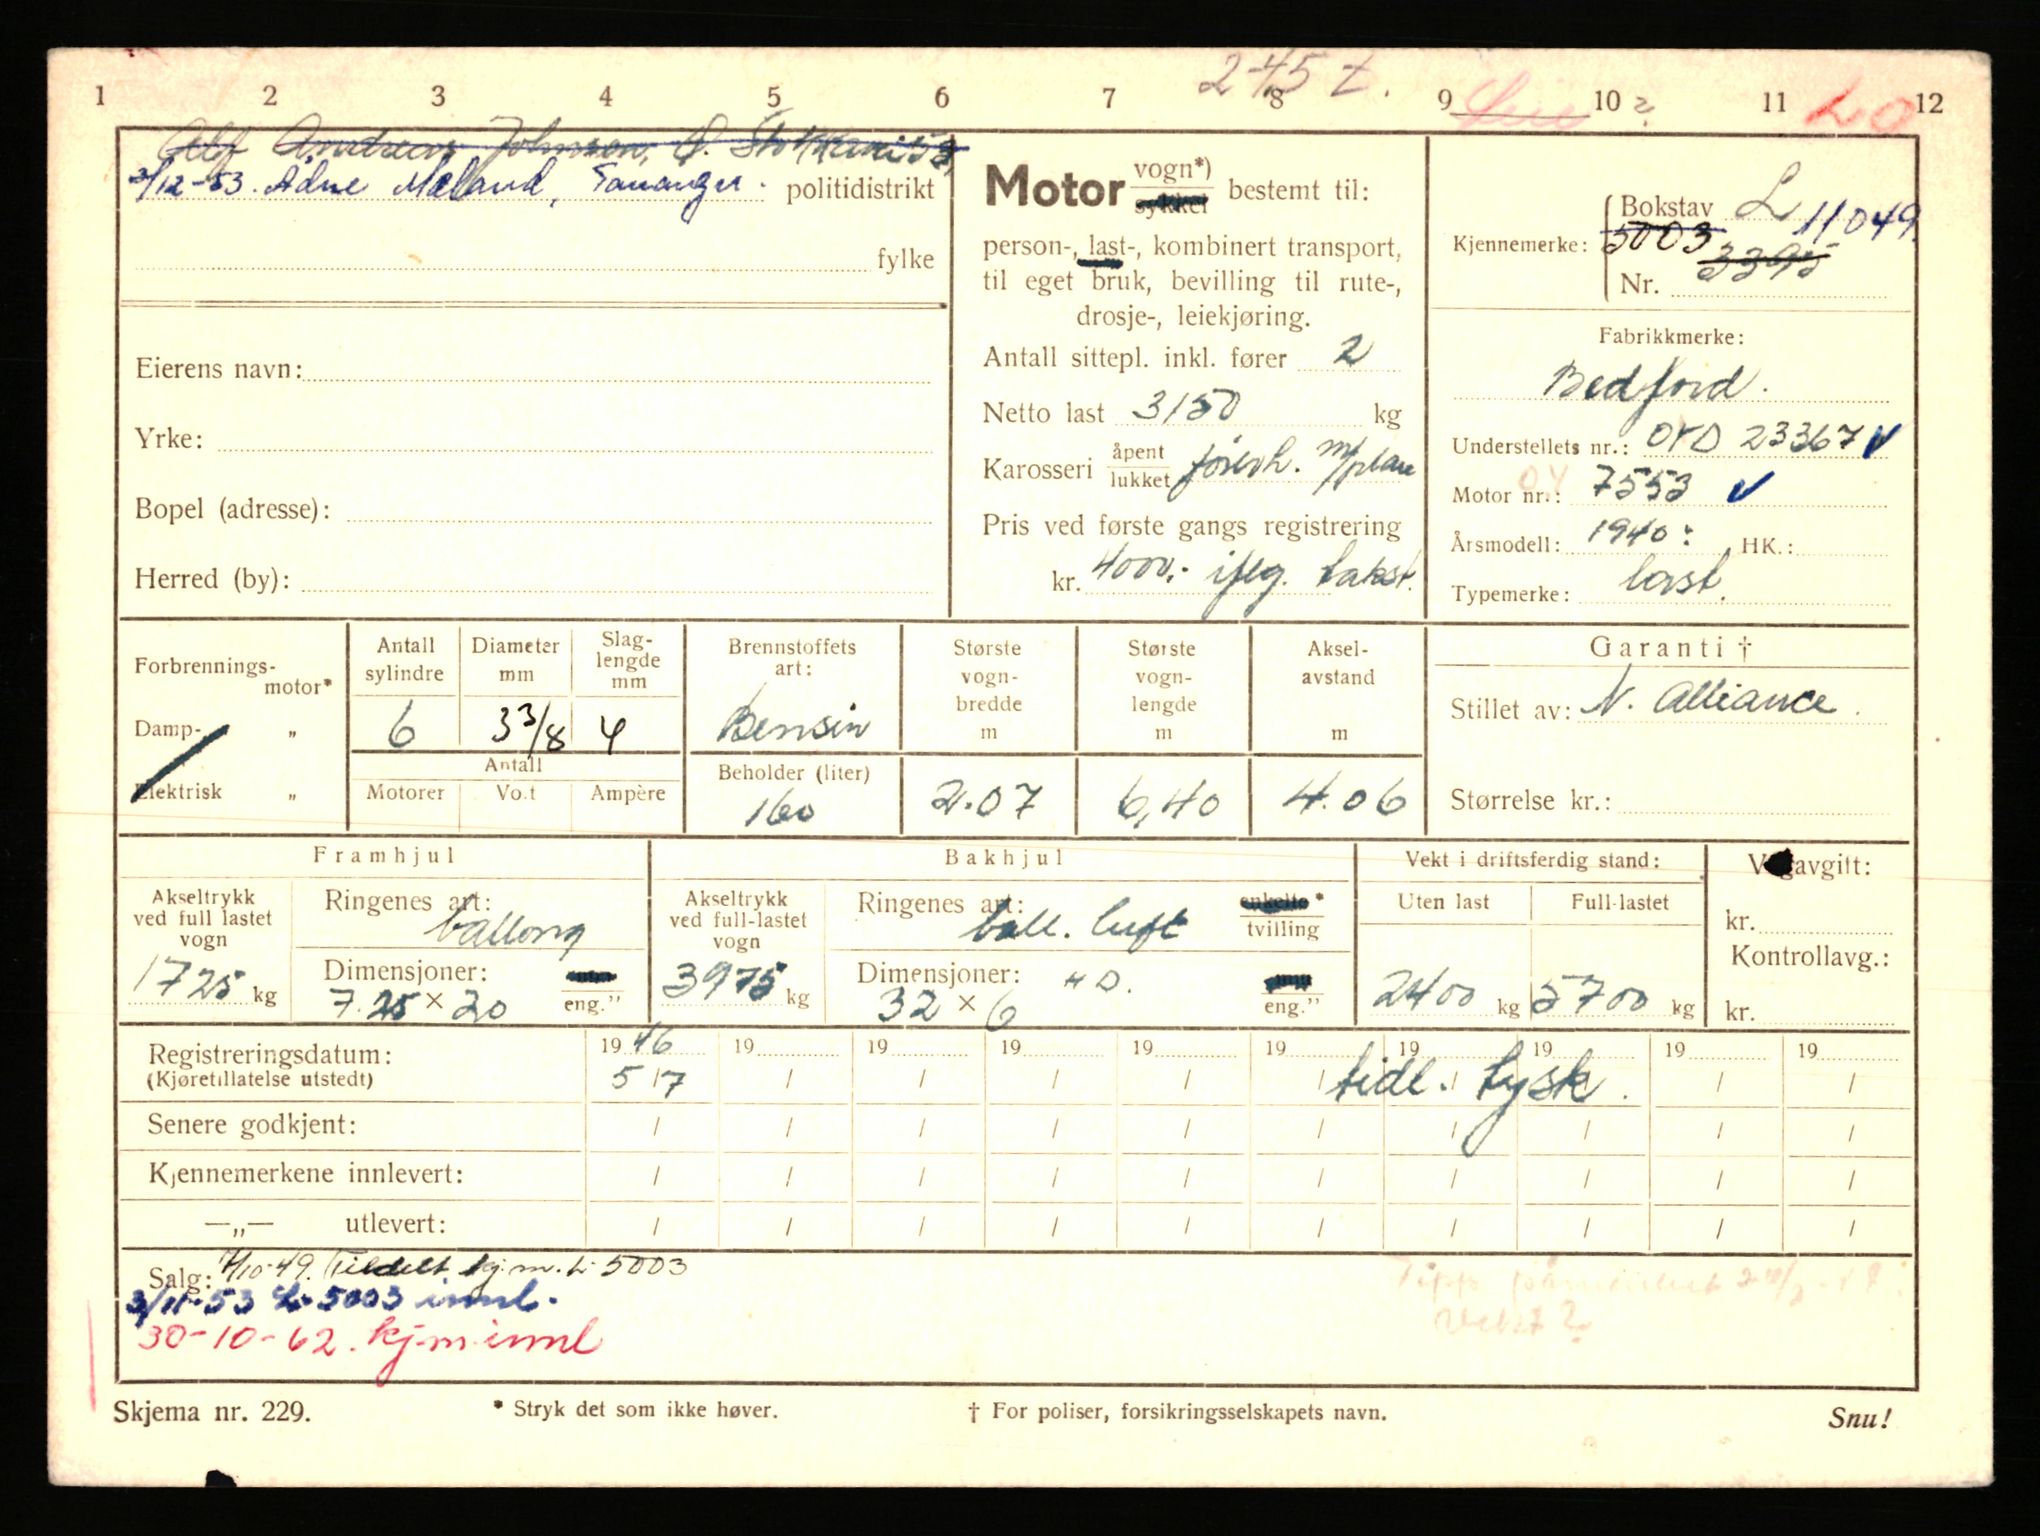 245 t.
1 2 3 4 5 6 7 8 9 10 ? 11 12
Lo
Alf Andreas Johnson,
3/12-53. Ådne Mæland, Tananger. politidistrikt
fylke
Eierens navn:
Yrke:
Bopel (adresse):
Herred (by):
Motor vogn*) sykkel bestemt til:
person-, last-, kombinert transport,
til eget bruk, bevilling til rute-,
drosje-, leiekjøring.
Antall sittepl. inkl. fører 2
Netto last 3150 kg
Karosseri åpent lukket førerh. m/plan
Pris ved første gangs registrering
kr. 4000,- ifølg. takst.
Kjennemerke: Bokstav L 11049
5003
3395
Nr.
Fabrikkmerke:
Bedford.
Understellets nr.: OYD 23367 ✓
Motor nr.: OY 7553 ✓
Årsmodell: 1940: HK.:
Typemerke: last.
Forbrennings-motor*
Damp- „
Elektrisk „
Antall sylindre 6
Diameter mm 3 3/8
Slag-lengde mm 4
Antall
Motorer Volt Ampère
Brennstoffets art: Bensin
Beholder (liter) 160
Største vogn-bredde m 2.07
Største vogn-lengde m 6,40
Aksel-avstand m 4.06
Garanti †
Stillet av: N. Alliance.
Størrelse kr.:
Framhjul
Akseltrykk ved full lastet vogn 1725 kg
Ringenes art: ballong
Dimensjoner: 7.25 × 20 eng."
Bakhjul
Akseltrykk ved full-lastet vogn 3975 kg
Ringenes art: ball. luft enkelte* tvilling
Dimensjoner: HD. 32 × 6 eng."
Vekt i driftsferdig stand:
Uten last 2400 kg
Full-lastet 5700 kg
Vegavgift:
kr.
Kontrollavg.:
kr.
Registreringsdatum: 1946 19 19 19 19 19 19 19 19 19
(Kjøretillatelse utstedt) 5/7 / / / / / tidl. tysk. / /
Senere godkjent: / / / / / / / / / /
Kjennemerkene innlevert: / / / / / / / / / /
—„— utlevert: / / / / / / / / / /
Salg: 7/10-49. Tildelt kj.m. L-5003
3/11-53 L-5003 innl.
30-10-62. kj.m. innl
Skjema nr. 229. * Stryk det som ikke høver. † For poliser, forsikringsselskapets navn. Snu!